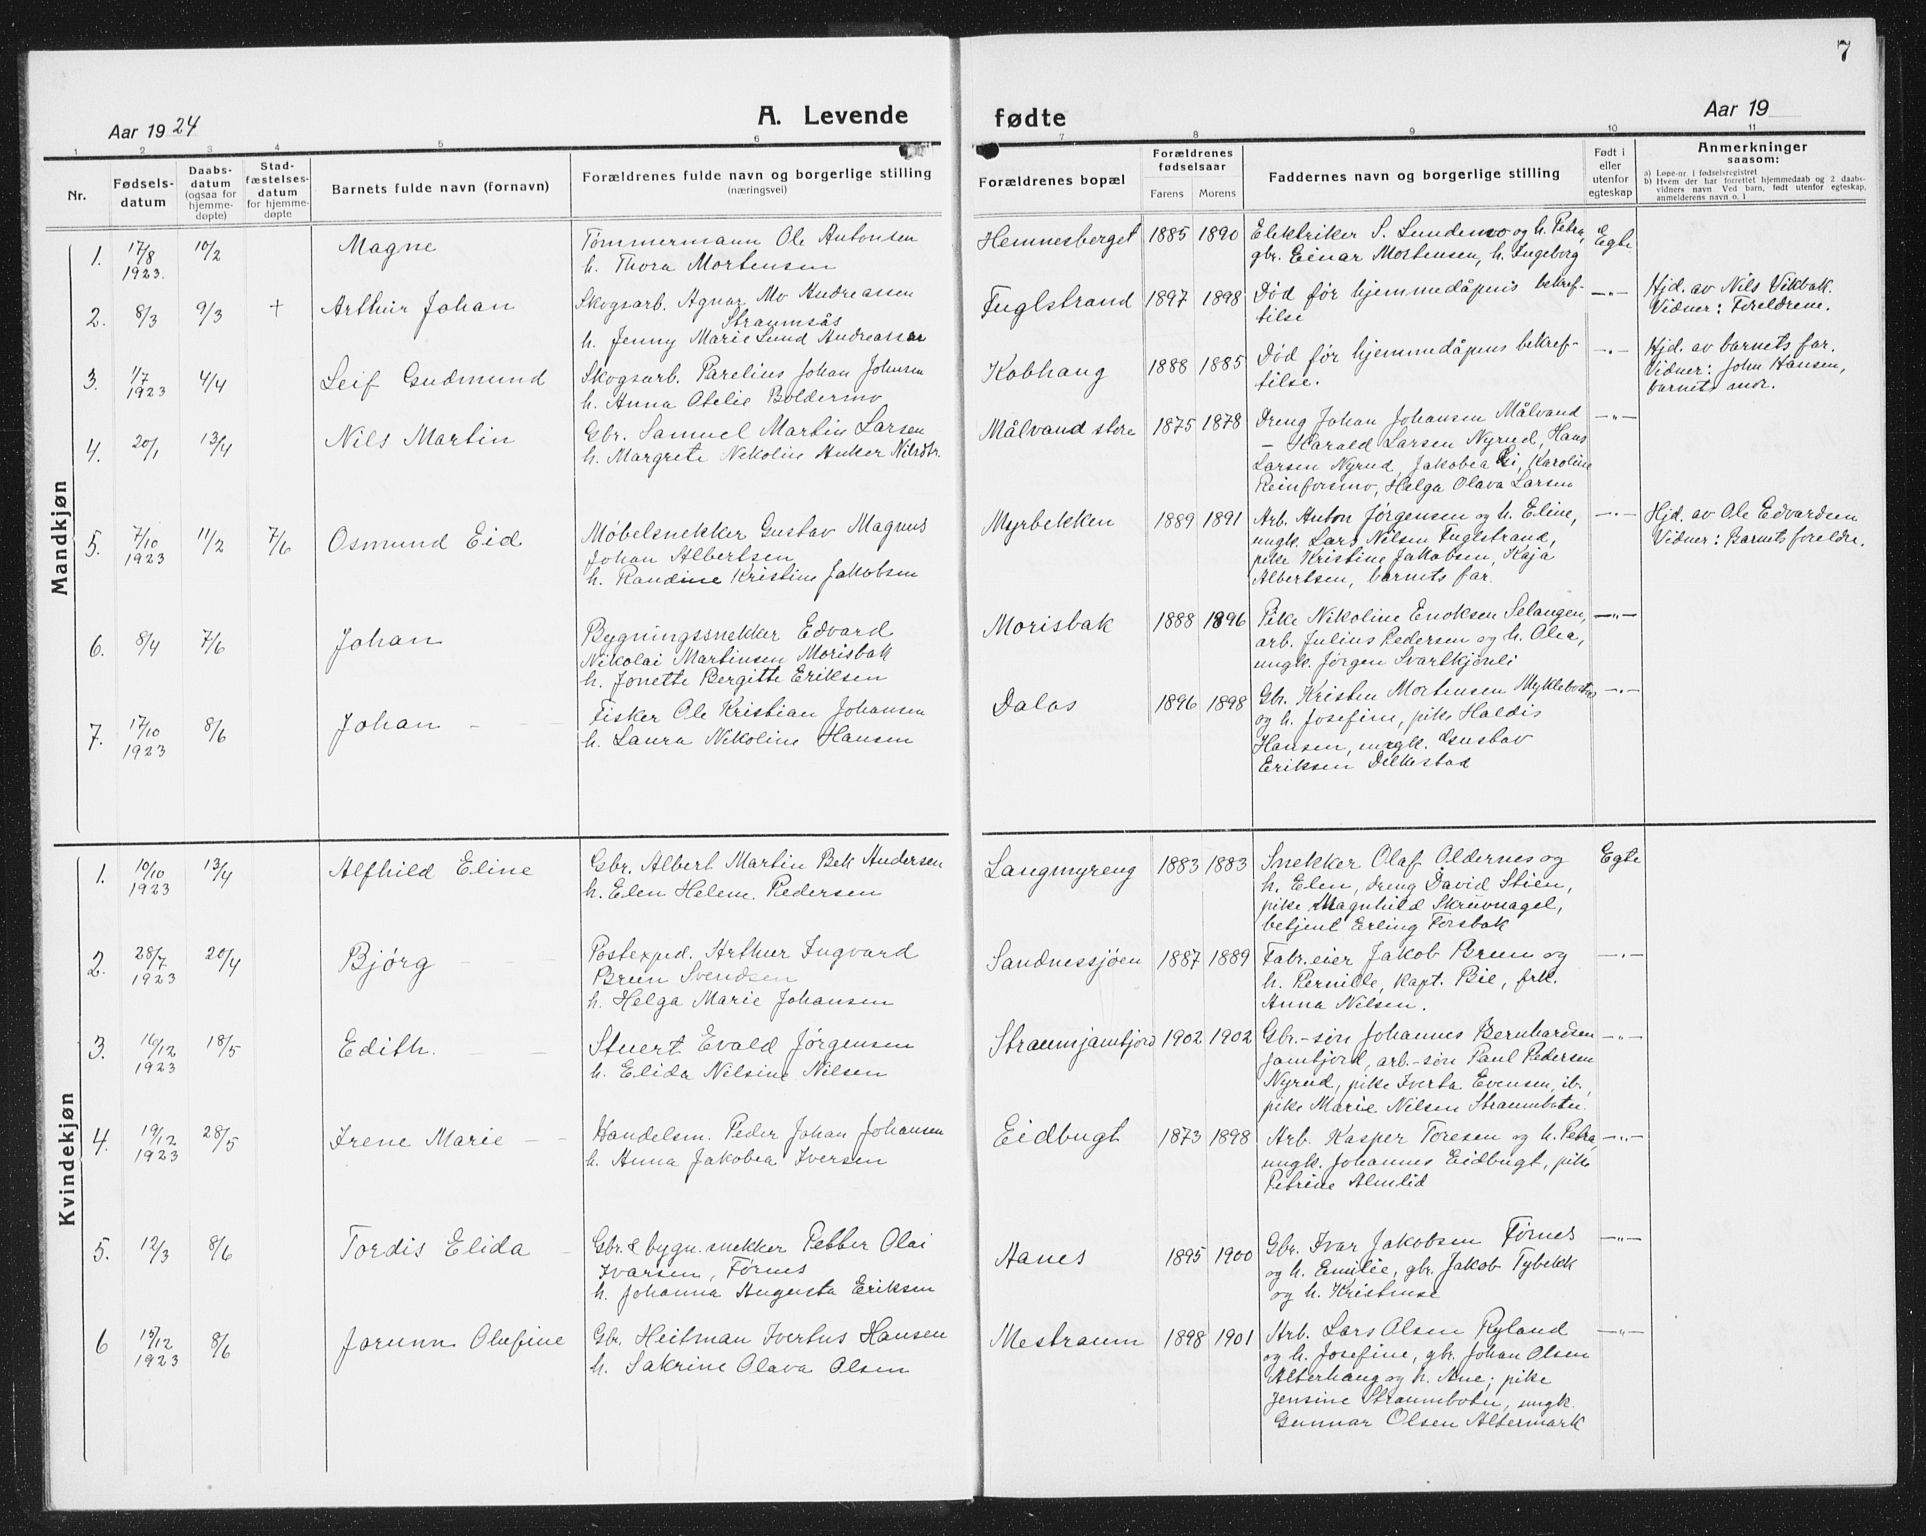 7
Aar 1924
A. Levende
fødte
Aar 19
1 2 3 4 5 6 7 8 9 10 11
Nr.
Fødsels-
datum
Daabs-
datum
(ogsaa for
hjemme-
døpte)
Stad-
fæstelses-
datum
for hjemme-
døpte
Barnets fulde navn (fornavn)
Forældrenes fulde navn og borgerlige stilling
(næringsvei)
Forældrenes bopæl
Forældrenes
fødselsaar
Farens Morens
Faddernes navn og borgerlige stilling
Født i
eller
utenfor
egteskap
Anmerkninger
saasom:
a) Løpe-nr. i fødselsregistret
b) Hvem der har forrettet hjemmedaab og 2 daabs-
vidners navn Ved barn, født utenfor egteskap,
anmelderens navn o. l
Mandkjøn
1. 17/8 1923. 10/2 Magne
Tømmermann Ole Antonsen
h. Thora Mortensen
Hemnesberget 1885 1890
Elektriker S. Lundemo og h. Petra,
gbr. Einar Mortensen, h. Ingeborg
Egte
2. 8/3 9/3 + Arthur Johan
Skogsarb. Agnar Mo Andreassen
Straumsås
h. Jenny Marie Lund Andreassen
Fuglstrand 1897 1898
Død før hjemmedåpens bekref-
telse
—„—
Hjd. av Nils Vikbak.
Vidner: Foreldrene.
3. 1/7 1923 4/4 Leif Gudmund
Skogsarb. Parelius Johan Johnsen
h. Anna Otelie Boldermo
Kobhaug 1888 1885
Død før hjemmedåpens bekref-
telse.
—„—
Hjd. av barnets far.
Vidner: John Hansen,
barnets mor.
4. 20/1 13/4 Nils Martin
Gbr. Samuel Martin Larsen
h. Margrete Nekolin Anker Nilsdtr.
Målvand store 1875 1878
Dreng Johan Johansen Målvand
— Harald Larsen Nyrud, Hans
Larsen Nyrud, Jakobea Li, Karoline
Reinforsmo, Helga Olava Larsen
—„—
5. 7/10 1923 11/2 7/6 Osmund Eid
Møbelsnekker Gustav Magnus
Johan Albertsen
h. Randine Kristine Jakobsen
Myrbekken 1889 1891
Arb. Anton Jørgensen og h. Eline,
ungk. Lars Nilsen Fuglstrand,
pike Kristine Jakobsen, Kaja
Albertsen, barnets far.
—„—
Hjd. av Ole Edvardsen
Vidner: Barnets foreldre.
6. 8/4 7/6 Johan
Bygningssnekker Edvard
Nikolai Martinsen Morisbak
h. Jonette Bergitte Eriksen
Morisbak 1888 1896
Pike Nikoline Enoksen Selangen,
arb. Julius Pedersen og h. Olea,
ungk. Jørgen Svartkjønli
—„—
7. 17/10 1923 8/6 Johan
Fisker Ole Kristian Johansen
h. Laura Nikoline Hansen
Dalos 1896 1898
Gbr. Kristen Mortensen Myklebostad
og h. Josefine, pike Haldis
Hansen, ungk. Gustav
Eriksen Dilkestad
—„—
Kvindekjøn
1. 10/10 1923 13/4 Alfhild Eline
Gbr. Albert Martin Bek Andersen
h. Elen Helene Pedersen
Langmyreng 1883 1883
Snekker Olaf Oldernes og
h. Elen, dreng David Stien,
pike Magnhild Skruvnagel,
betjent Erling Forsbak
Egte
2. 28/7 1923 20/4 Bjørg
Postexped. Arthur Ingvard
Brun Svendsen
h. Helga Marie Johansen
Sandnessjøen 1887 1889
Fabr.eier Jakob Brun og
h. Pernille, kapt. Bie, frk.
Anna Nilsen.
—„—
3. 16/12 1923 18/5 Edith.
Stuert Evald Jørgensen
h. Elida Nelsine Nilsen
Straumjamtfjord 1902 1902
Gbr.-søn Johannes Bernhardsen
Jamtfjord, arb.-søn Paul Pedersen
Nyrud, pike Iverta Evensen, ib.,
pike Marie Nilsen Straumbotn.
—„—
4. 19/12 1923 28/5 Irene Marie
Handelsm. Peder Johan Johansen
h. Anna Jakobea Iversen
Eidbugt 1873 1898
Arb. Kasper Toresen og h. Petra,
ungk. Johannes Eidbugt, pike
Petrine Almlid
—„—
5. 12/3 8/6 Tordis Elida
Gbr. & bygn. snekker Petter Olai
Ivarsen, Førnes
h. Johanna Augusta Eriksen
Aanes 1895 1900
Gbr. Ivar Jakobsen Førnes
og h. Emilie, gbr. Jakob Tybekk
og h. Kristense
—„—
6 15/12 1923 8/6 Jorunn Olufine
Gbr. Heitman Ivertus Hansen
h. Sakrine Olava Olsen
Mestraum 1898 1901
Arb. Lars Olsen Ryland
og h. Josefine, gbr. Johan Olsen
Alterhaug og h. Ane; pike
Jensine Straumbotn, ungk.
Gunnar Olsen Altermark
—„—